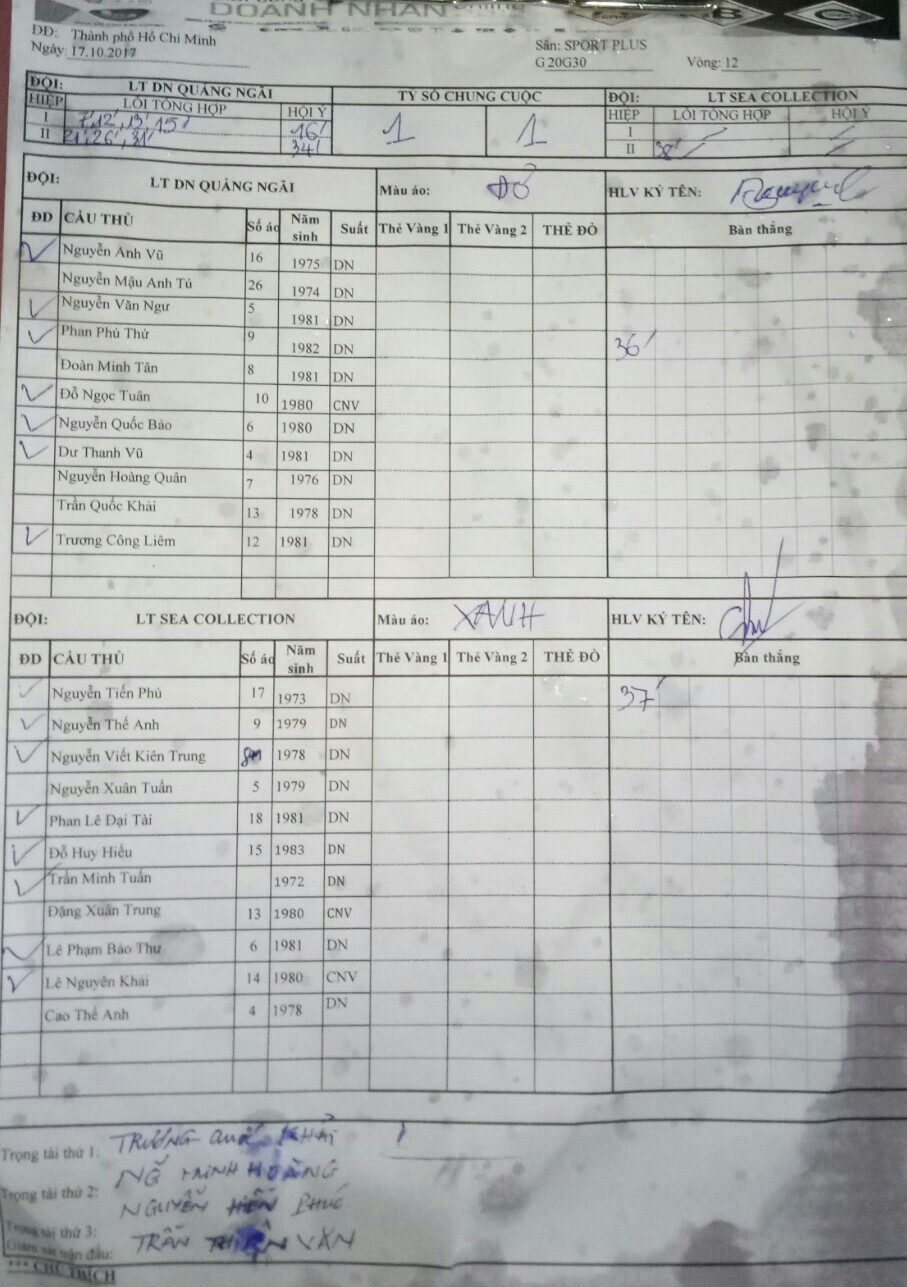 DOANH NHÂN
ĐĐ: Thành phố Hồ Chí Minh Sân: SPORT PLUS
Ngày 17.10.2017 G 20G30 Vòng: 12
ĐỘI: LT DN QUẢNG NGÃI TỶ SỐ CHUNG CUỘC ĐỘI: LT SEA COLLECTION
HIỆP LỖI TỔNG HỢP HỘI Ý HIỆP LỖI TỔNG HỢP HỘI Ý
I 7,12',13' 15' 16' 1 1 I
II 21',26', 31' 34' II 38'
ĐỘI: LT DN QUẢNG NGÃI Màu áo: ĐỎ HLV KÝ TÊN:
ĐD CẦU THỦ Số áo Năm sinh Suất Thẻ Vàng 1 Thẻ Vàng 2 THẺ ĐỎ Bàn thắng
Nguyễn Anh Vũ 16 1975 DN
Nguyễn Mậu Anh Tú 26 1974 DN
Nguyễn Văn Ngư 5 1981 DN
Phan Phú Thứ 9 1982 DN 36'
Đoàn Minh Tân 8 1981 DN
Đỗ Ngọc Tuân 10 1980 CNV
Nguyễn Quốc Bảo 6 1980 DN
Dư Thanh Vũ 4 1981 DN
Nguyễn Hoàng Quân 7 1976 DN
Trần Quốc Khải 13 1978 DN
Trương Công Liêm 12 1981 DN
ĐỘI: LT SEA COLLECTION Màu áo: XANH HLV KÝ TÊN:
ĐD CẦU THỦ Số áo Năm sinh Suất Thẻ Vàng 1 Thẻ Vàng 2 THẺ ĐỎ Bàn thắng
Nguyễn Tiến Phú 17 1973 DN 37'
Nguyễn Thế Anh 9 1979 DN
Nguyễn Viết Kiên Trung 1978 DN
Nguyễn Xuân Tuấn 5 1979 DN
Phan Lê Đại Tài 18 1981 DN
Đỗ Huy Hiếu 15 1983 DN
Trần Minh Tuấn 1972 DN
Đặng Xuân Trung 13 1980 CNV
Lê Phạm Bảo Thư 6 1981 DN
Lê Nguyên Khải 14 1980 CNV
Cao Thế Anh 4 1978 DN
Trọng tài thứ 1: TRƯƠNG QUỐC KHẢI
Trọng tài thứ 2: NG MINH HOÀNG
Trọng tài thứ 3: NGUYỄN HIỀN PHÚC
Giám sát trận đấu: TRẦN VĂN
*** CHÚ THÍCH